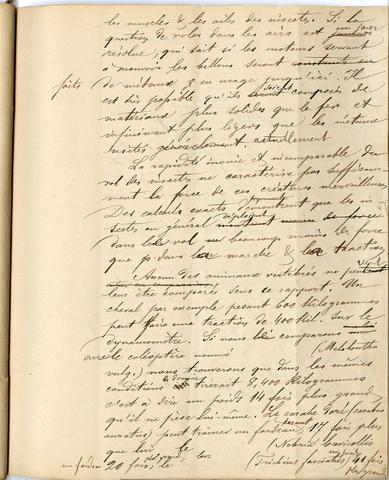 les muscles & les ailes des insectes. Si la
question de voler dans les airs est un jour
résolue, qui sait si les moteurs servant
à mouvoir les ballons seront construits en
faits de métaux en usage jusqu'ici. Il
est très possible qu'ils soient composés de
matériaux plus solides que le fer et
infiniment plus légers que les métaux
usités généralement actuellement
La rapidité inouïe & incomparable du
vol des insectes ne caractérise pas suffisam-
ment la force de ces créatures merveilleuses
Des calculs exacts démontrent que les in
sectes en général déploient
dans le vol beaucoup moins de force
que pr. dans la marche & la traction
Aucun des animaux vertébrés ne peut
leur être comparés sous ce rapport. Un
cheval par exemple pesant 600 Kilogrammes
peut faire une traction de 400 kil. sur le
dynamomètre. Si nous le comparons
avec le coléoptère nommé (Melolontha
vulg.) nous trouverons que dans les mêmes
conditions il tirerait 8,400 Kilogrammes
c'est à dire un poids 14 fois plus grand
qu'il ne pèse lui-même. Le carabe doré (carabus
auratus) peut trainer un fardeau pesant 17 fois plus
que lui le (Nebria brevicollis
un fardeau 20 fois, le (Trichius fasciatus) 41 fois
plus grand